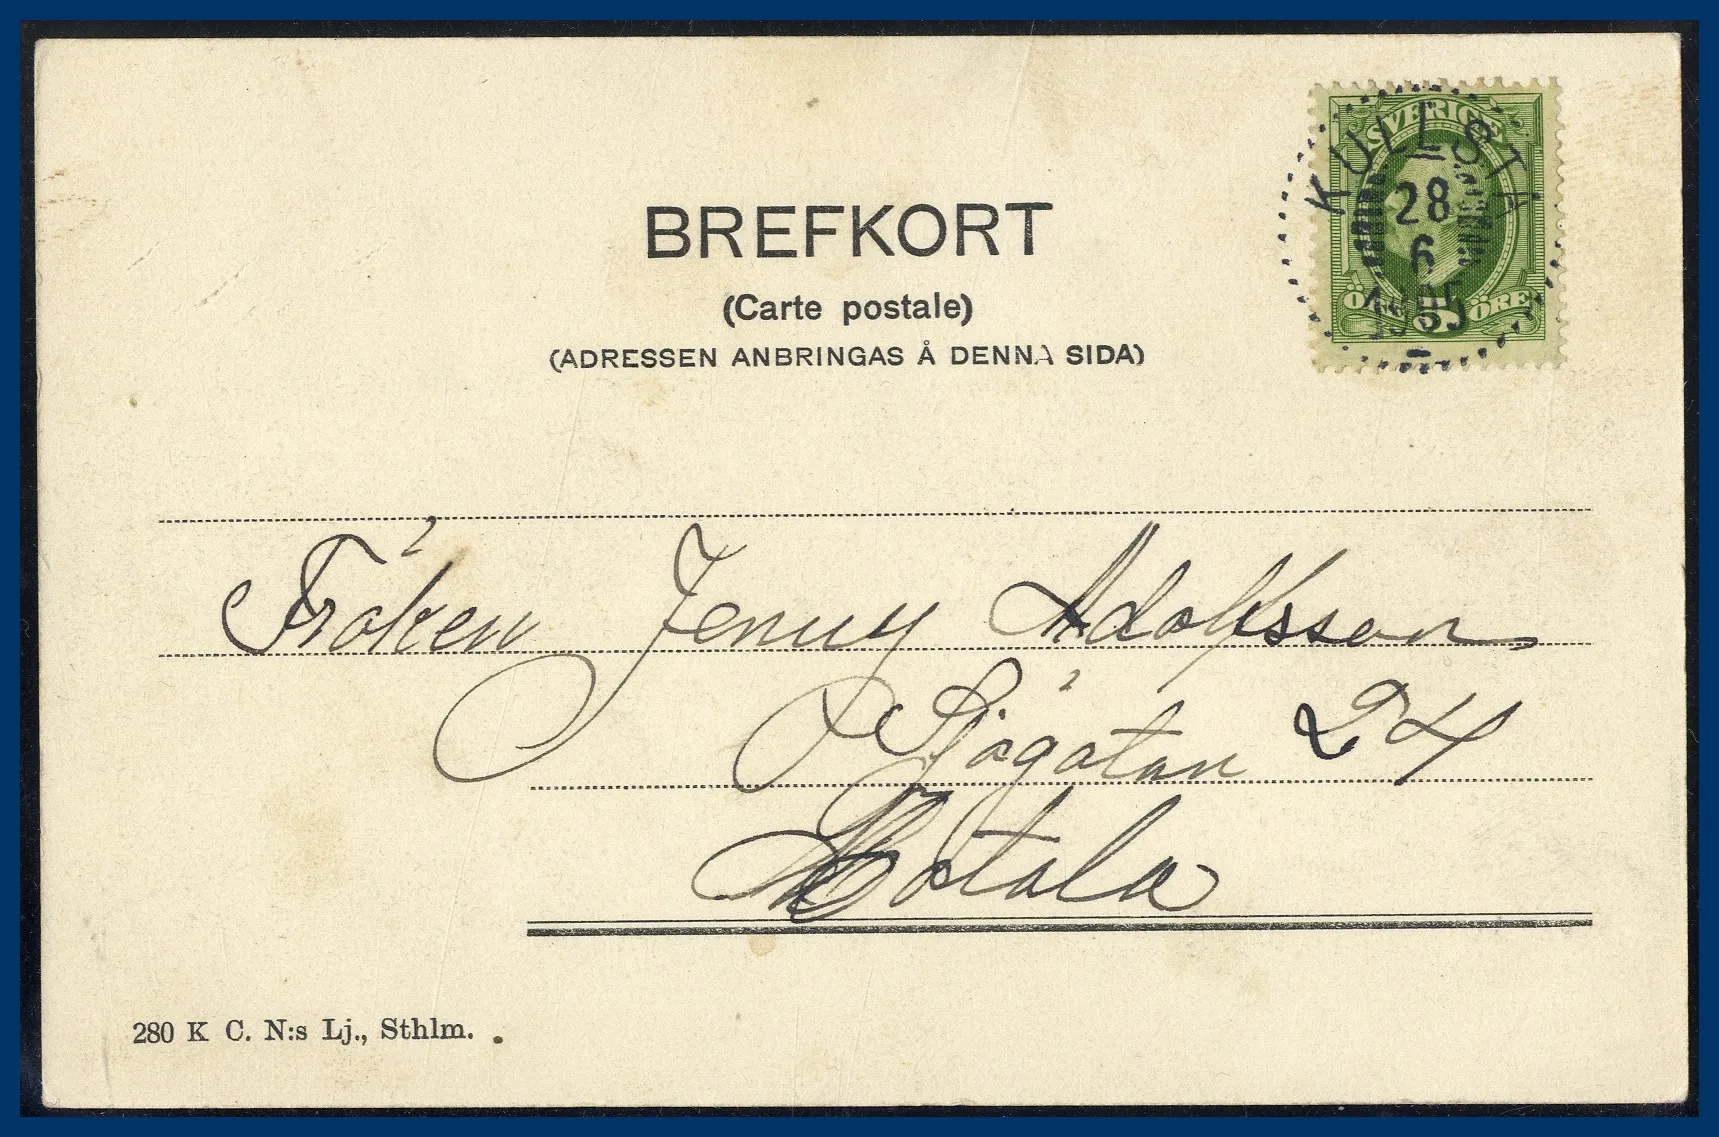 BREFKORT
(Carte postale)
(ADRESSEN ANBRINGAS Å DENNA SIDA)
SVERIGE
ÖRE 5 ÖRE
KULLSTA
28
6
1905
Fröken Jenny Adolfsson
Sjögatan 24
Motala
280 K C. N:s Lj., Sthlm.